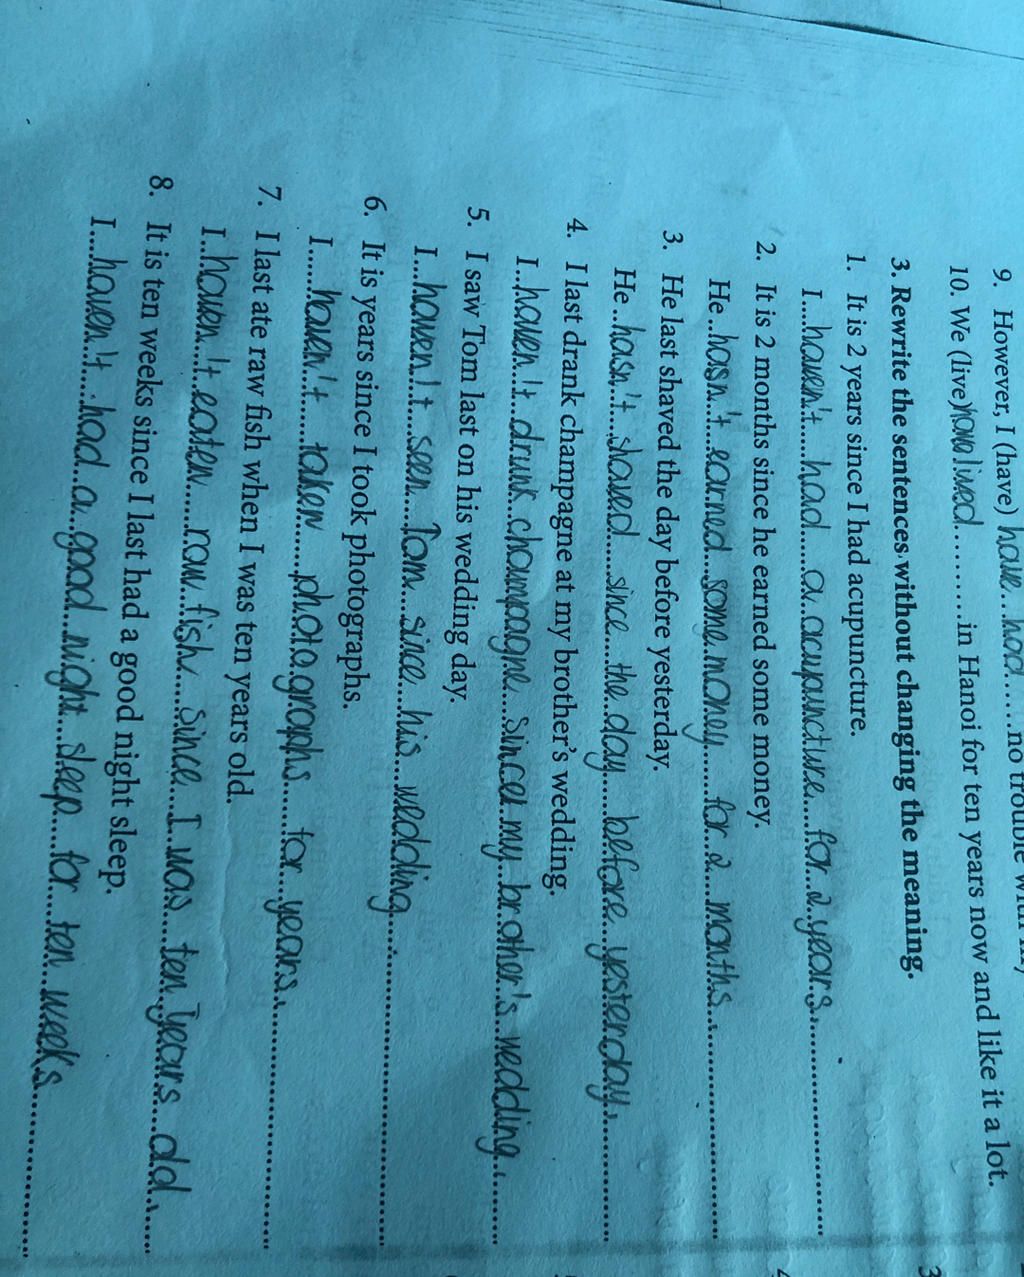 9. However, I (have) have...had......no trouble with
10. We (live) have lived..........in Hanoi for ten years now and like it a lot.
3. Rewrite the sentences without changing the meaning.
1. It is 2 years since I had acupuncture.
I....haven't....had....a acupuncture...for..2 years.
2. It is 2 months since he earned some money.
He..hasn't...earned..some money...for..2...months.
3. He last shaved the day before yesterday.
He..hasn't...shaved....since...the day...before yesterday.
4. I last drank champagne at my brother's wedding.
I...haven't..drunk champagne...since my brother's wedding.
5. I saw Tom last on his wedding day.
I...haven't...seen...Tom...since...his...wedding
6. It is years since I took photographs.
I......haven't....taken....photographs....for...years.
7. I last ate raw fish when I was ten years old.
I...haven't eaten...raw fish...since...I was...ten years old.
8. It is ten weeks since I last had a good night sleep.
I....haven't...had...a..good night sleep...for...ten...weeks
3
4